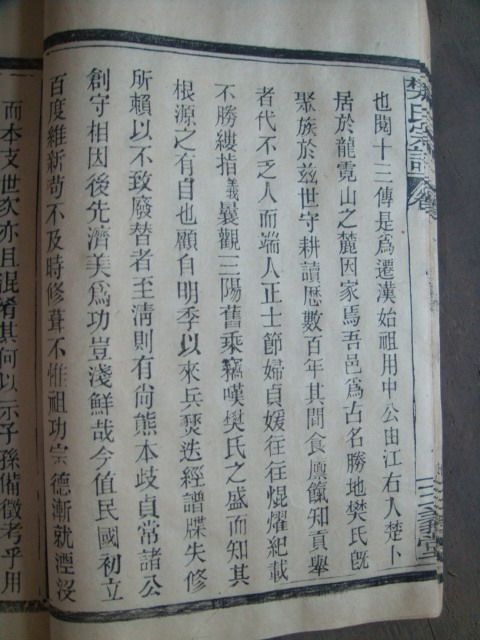 樊氏宗譜 卷
三義堂
也閱十三傳是爲遷漢始祖用中公由江右人楚卜
居於龍霓山之麓因家焉吾邑爲古名勝地樊氏旣
聚族於茲世守耕讀歷數百年其間食廪餼知貢舉
者代不乏人而端人正士節婦貞媛往往焜燿紀載
不勝縷指義曩觀三陽舊乘竊嘆樊氏之盛而知其
根源之有自也顧自明季以來兵燹迭經譜牒失修
所賴以不致廢替者至清則有尚熊本歧貞常諸公
創守相因後先濟美爲功豈淺鮮哉今值民國初立
百度維新苟不及時修葺不惟祖功宗德漸就湮沒
而本支世次亦且混淆其何以示子孫備徵考乎用